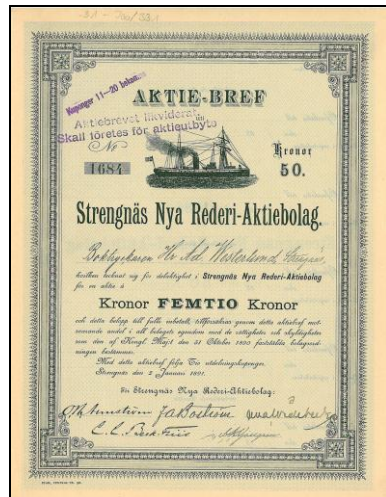 Kuponger 11–20 bekomna
AKTIE-BREF
Aktiebrevet likviderat
Skall företes för aktieutbyte
No
1684
Kronor
50.
Strengnäs Nya Rederi-Aktiebolag.
Bokbryckaren Hr Ad. Westerlund,
hvilken tecknat sig för delaktighet i Strengnäs Nya Rederi-Aktiebolag
för en aktie à
Kronor FEMTIO Kronor
och detta belopp till fullo inbetalt, tillförsäkras genom detta aktiebref mot-
svarande andel i all bolagets egendom med de rättigheter och skyldigheter
som den af Kongl. Majt den 31 Oktober 1890 fastställda bolagsord-
ningen bestämmer.
Med detta aktiebref följa Tio utdelningskuponger.
Strengnäs den 2 Januari 1891.
För Strengnäs Nya Rederi-Aktiebolag:
J A Boström